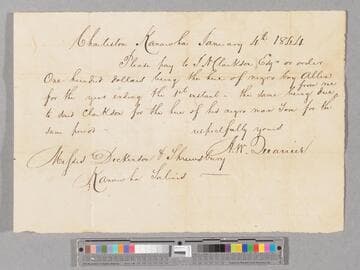 Charleston Kanawha January 4th 1844
Please pay to J. N. Clarkson Esqr or order
One hundred dollars being the hire of negro boy Allen
for the year ending the 1st instant - the same being due
from me
to said Clarkson for the hire of his negro man Tom for the
same period -
respectfully yours
Messrs Dickinson & Shrewsbury
Kanawha Salines